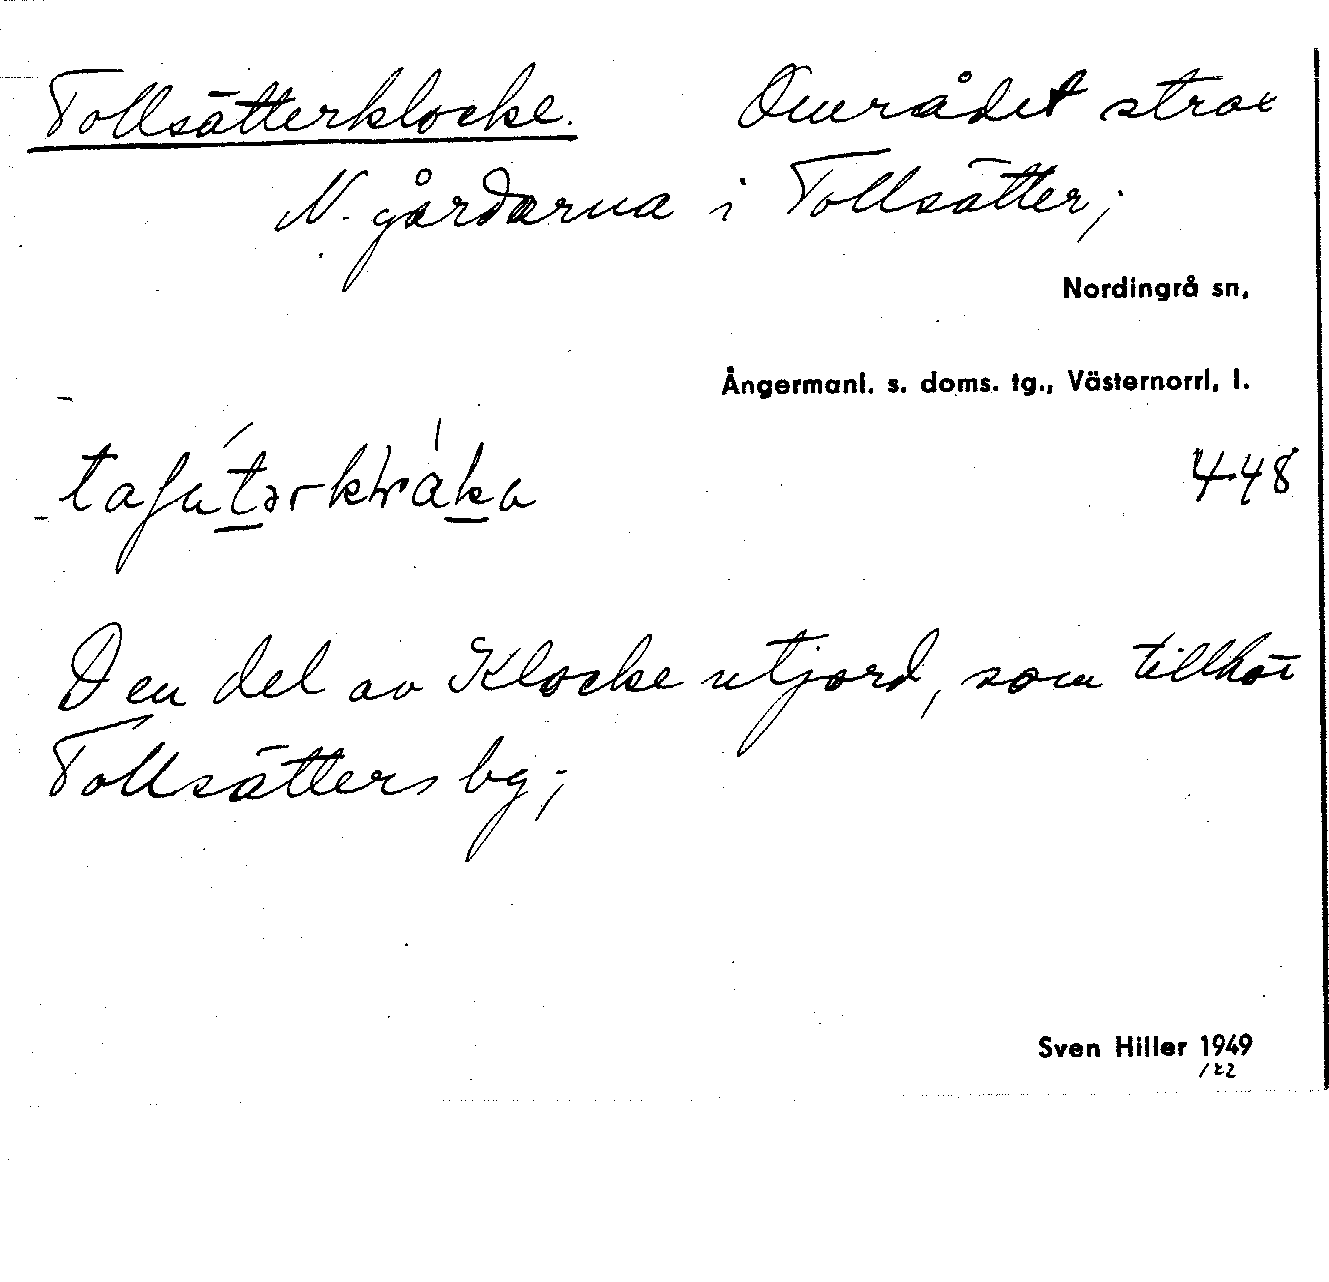 Tollsätterklocke. Området strax
N. gårdarna i Tollsätter;
Nordingrå sn,
Ångermanl. s. doms. tg., Västernorrl, l.
448
Den del av Klocke utjord, som tillhör
Tollsätters by;
Sven Hiller 1949